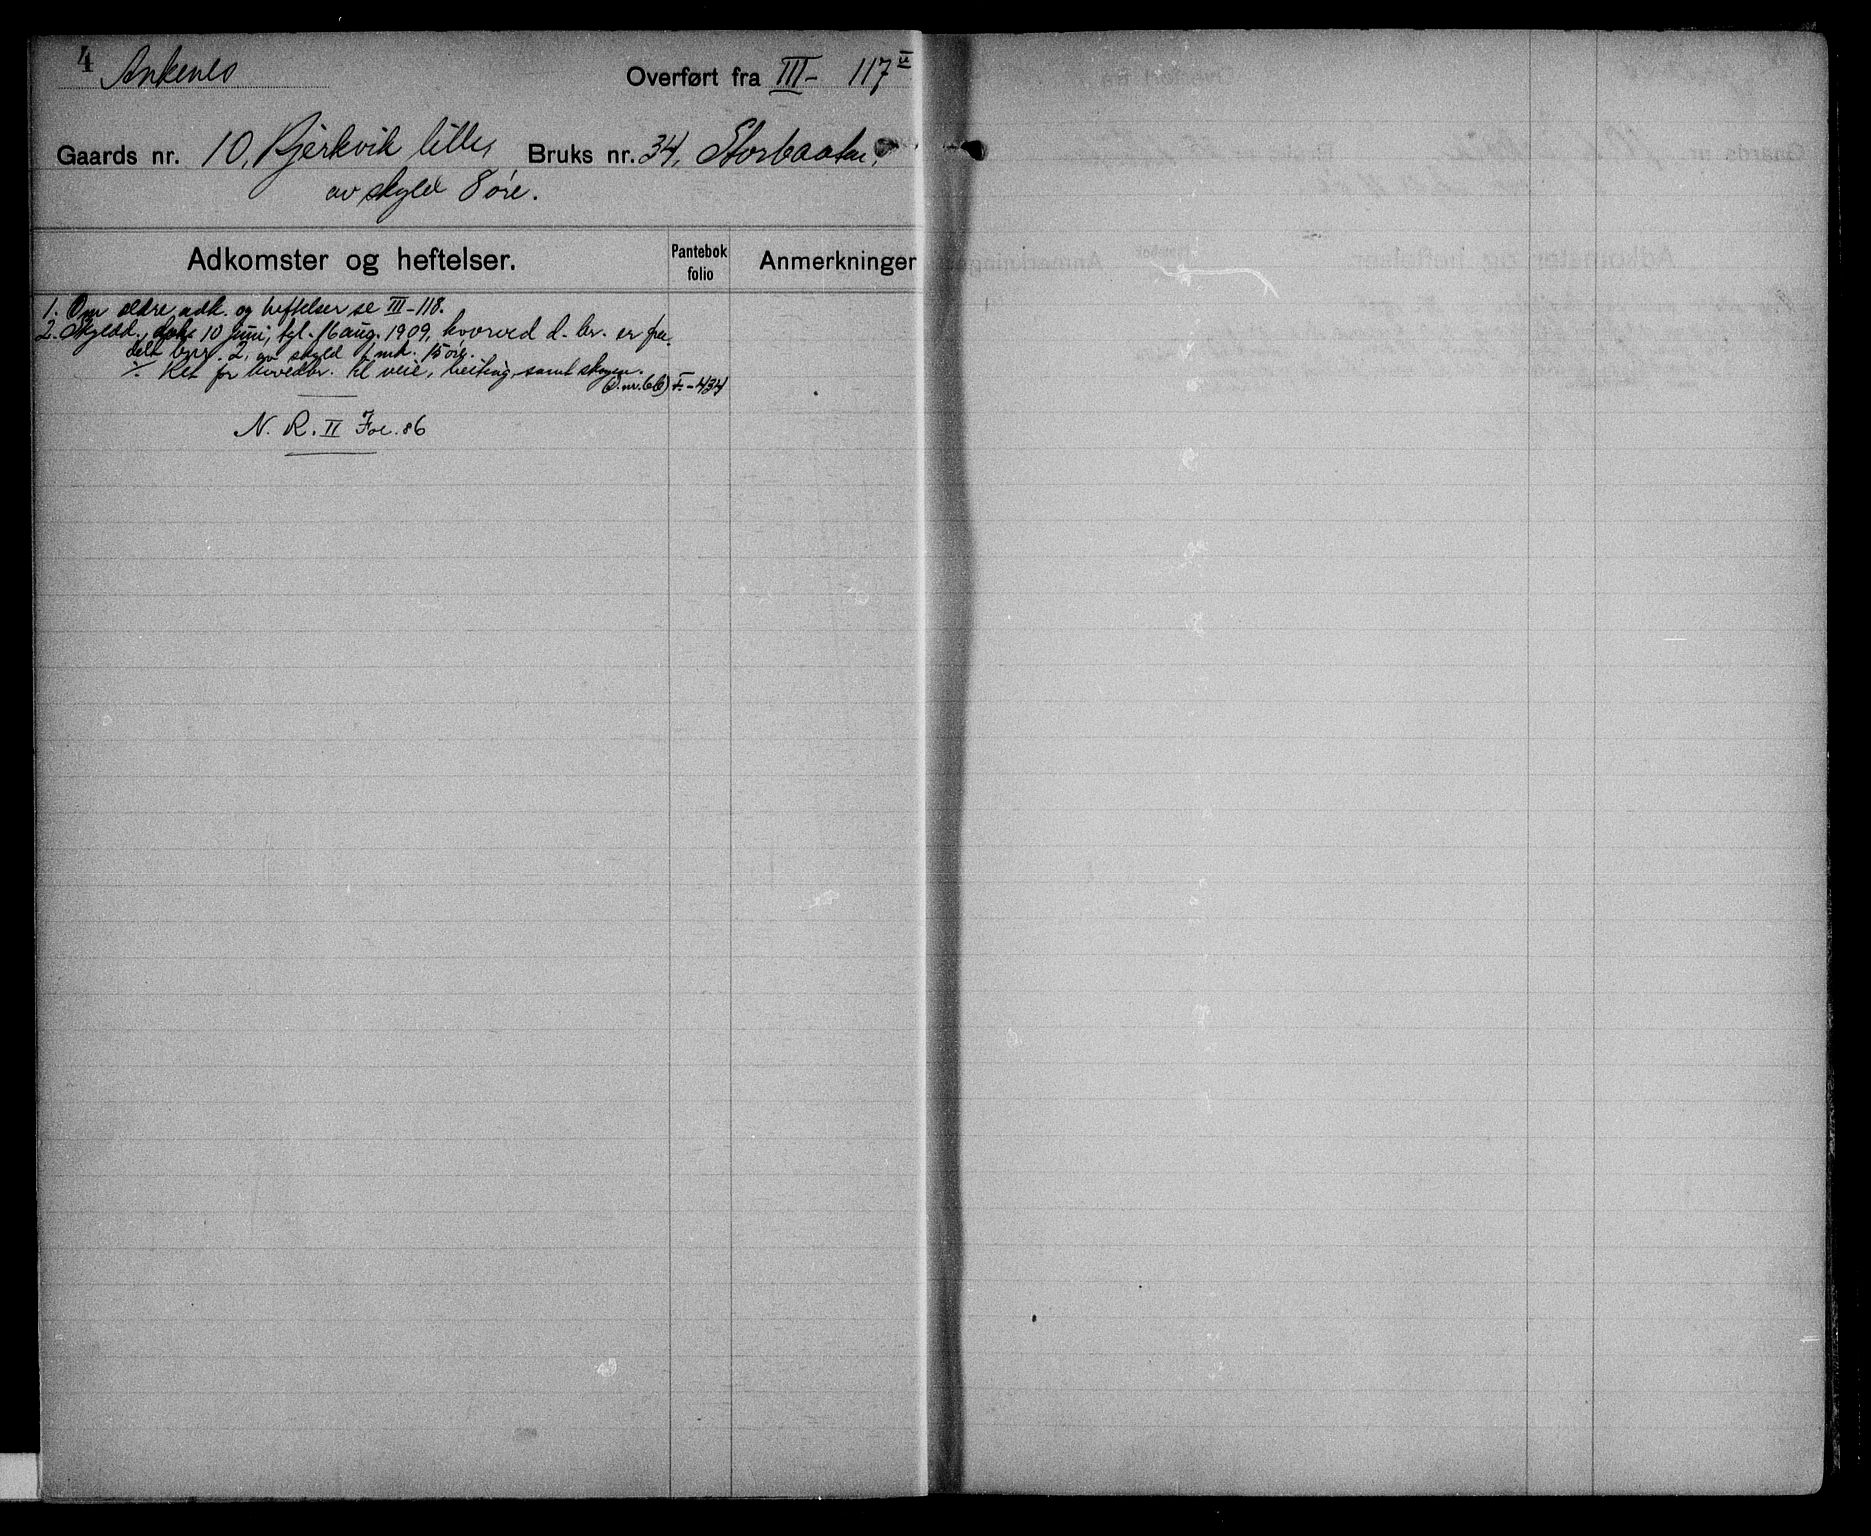 4 Ankenes
Overført fra III - 117 II
Gaards nr. 10, Bjerkvik lille, Bruks nr. 34,
av skyld 8 øre.
Adkomster og heftelser.
Pantebok folio
Anmerkninger
1. Om ældre adk. og heftelser se III-118.
2. Skyldd. 10 juni, tgl. 16 aug. 1909, hvorved d. br. er fra
delt brnr. 2, av skyld mk. 15 øre.
Ret for hovedbr. til veie, beiting, samt skogen.
(D.nr. 66) F.-434
N. R. II Fol. 86